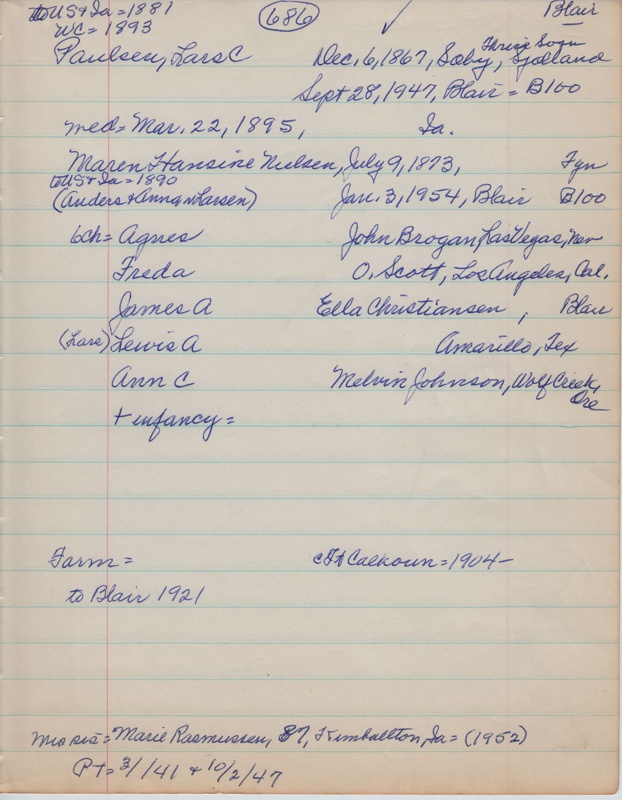 to US & Ia = 1881 (686) Blair
WC = 1893
Paulsen, Lars C Dec. 6, 1867, Soby, Thrise Sogn Sjolland
Sept 28, 1947, Blair = B100
med = Mar. 22, 1895, Ia.
Maren Hansine Nielsen, July 9, 1873, Fyn
to US & Ia = 1890
(Anders & Anna n Larsen) Jan. 3, 1954, Blair B100
6ch = Agnes John Brogan, Las Vegas, Nev
Freda O. Scott, Los Angeles, Cal.
James A Ella Christiansen, Blair
(Lars) Lewis A Amarillo, Tex
Ann C Melvin Johnson, Wolf Creek, Ore
+ infancy =
Farm = Ft Calhoun = 1904 -
to Blair 1921
Mrs sis = Marie Rasmussen, 87, Kimballton, Ia = (1952)
PT = 3/1/41 + 10/2/47